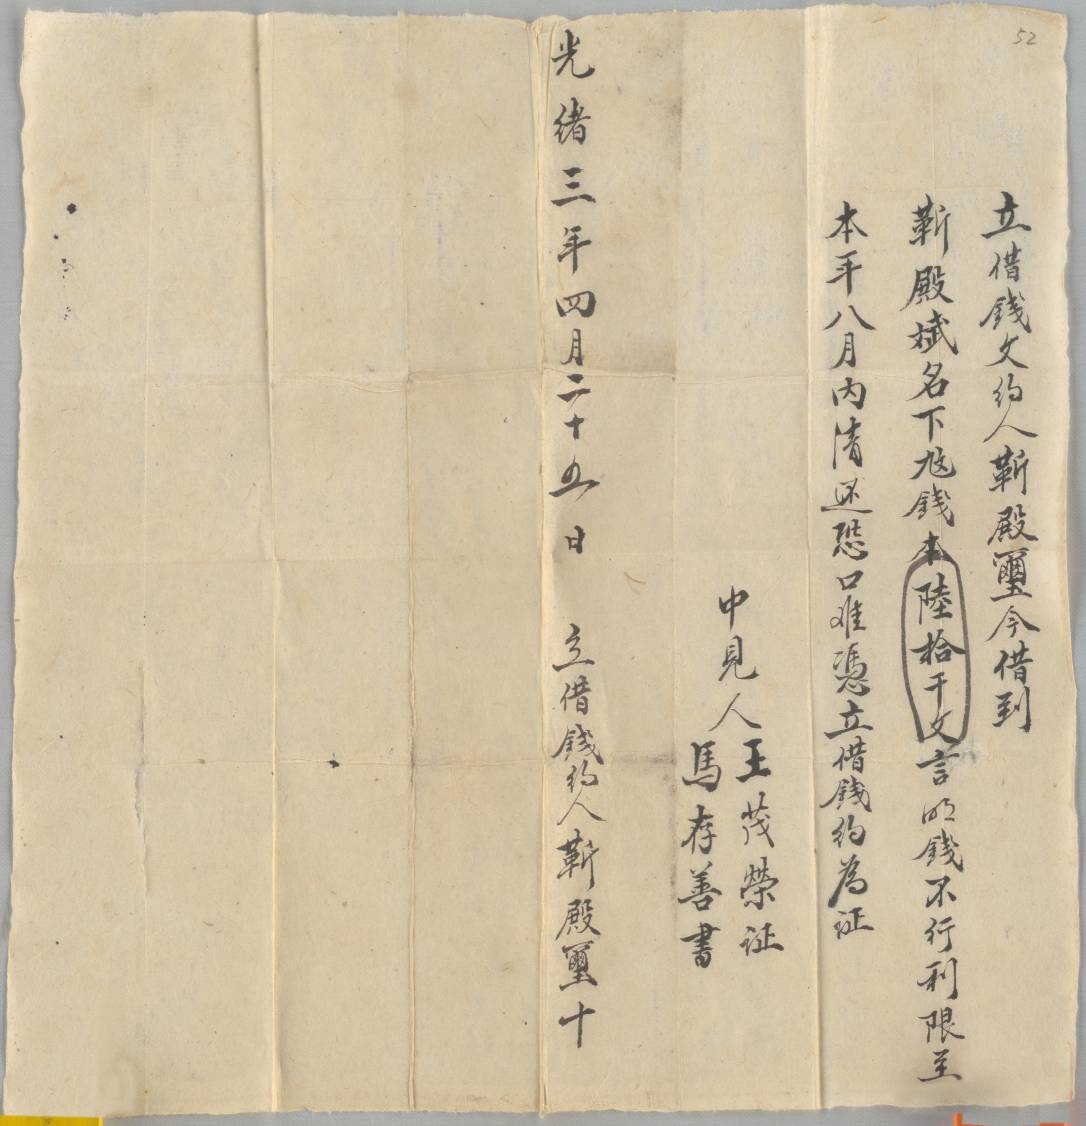 52
立借錢文約人靳殿璽今借到
靳殿斌名下旭錢本陸拾千文言明錢不行利限至
本年八月內清还恐口难憑立借錢約為证
中見人
王茂榮证
馬存善書
光緒三年四月二十五日 立借錢約人靳殿璽十